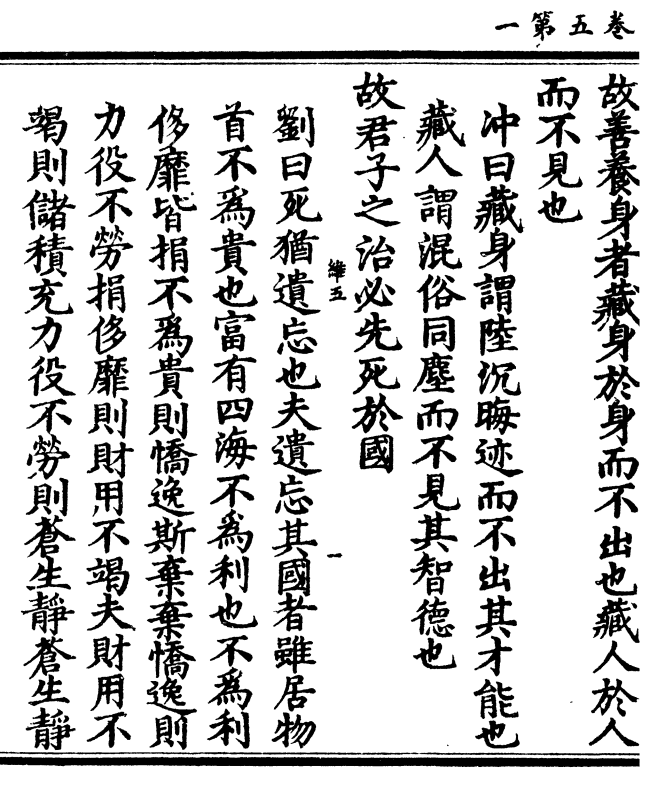 卷五第一
故善養身者藏身於身而不出也藏人於人
而不見也
冲曰藏身謂陸沉晦迹而不出其才能也
藏人謂混俗同塵而不見其智德也
故君子之治必先死於國
維五
一
劉曰死猶遺忘也夫遺忘其國者雖居物
首不為貴也富有四海不為利也不為利
侈靡皆捐不為貴則憍逸斯棄棄憍逸則
力役不勞捐侈靡則財用不竭夫財用不
竭則儲積充力役不勞則蒼生靜蒼生靜